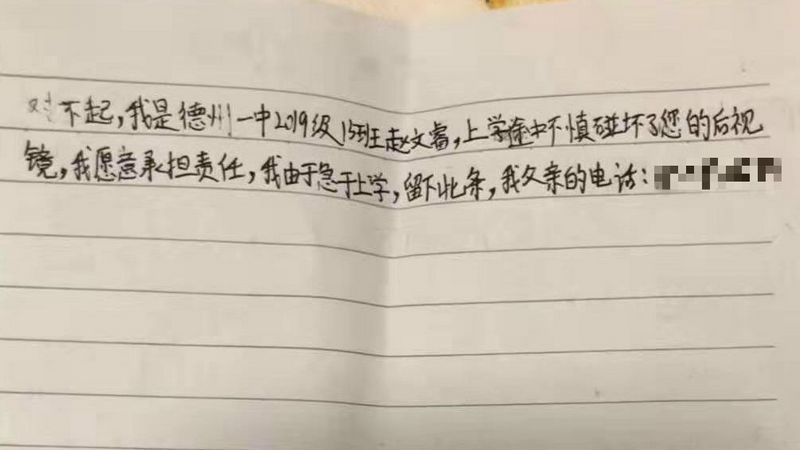 对不起，我是德州一中2019级15班赵文睿，上学途中不慎碰坏了您的后视
镜，我愿意承担责任，我由于急于上学，留下此条，我父亲的电话：